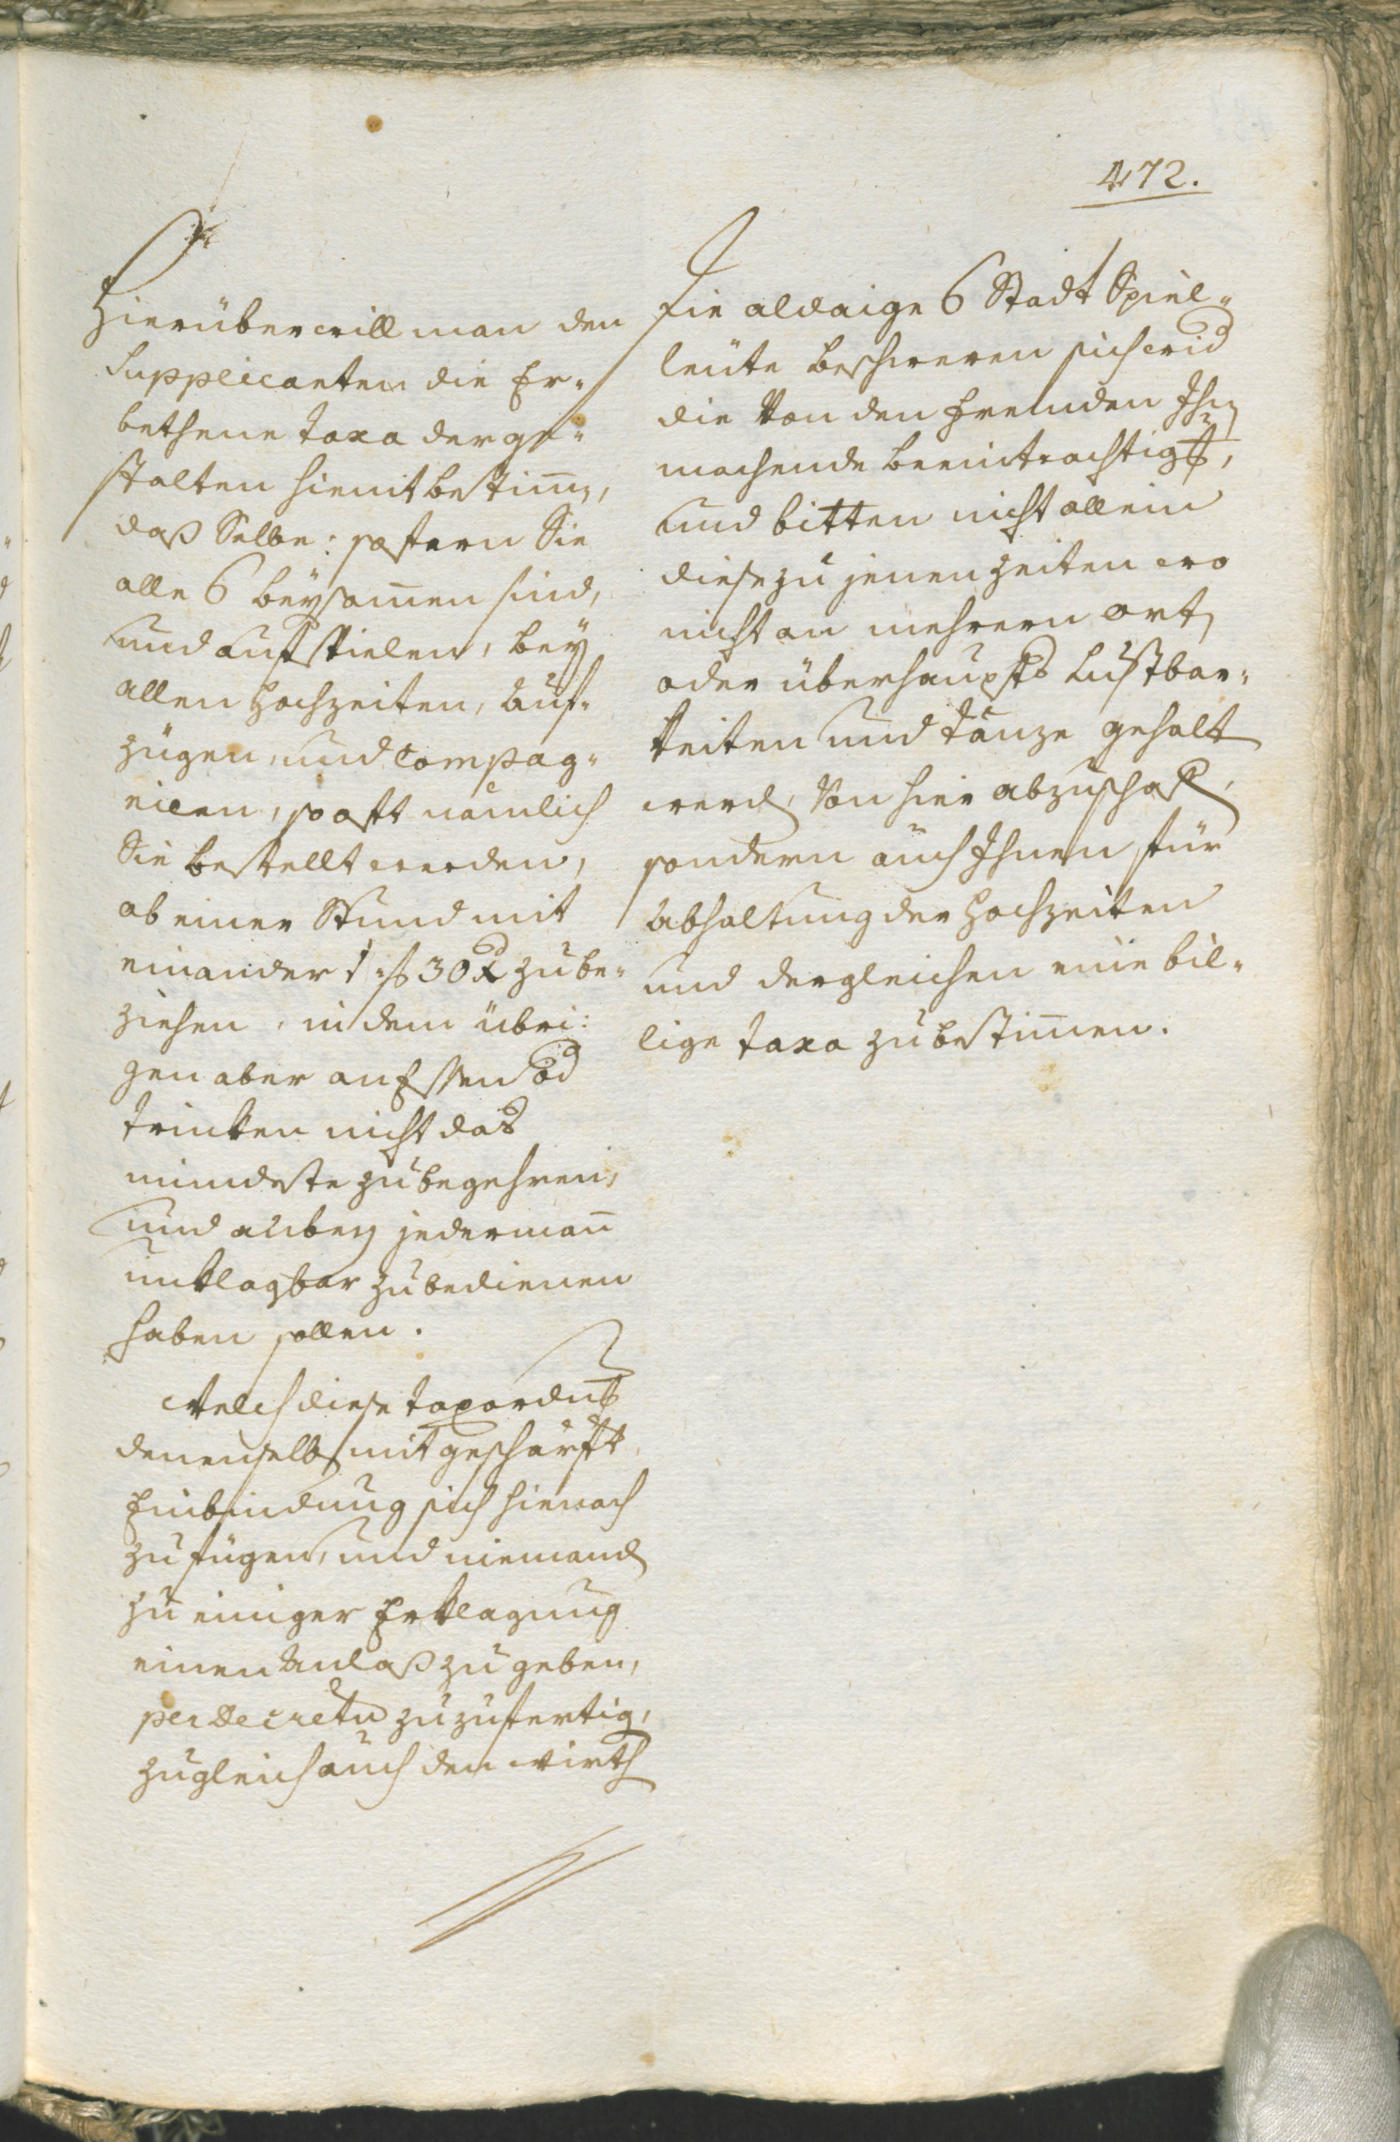 472.
Hierüber will man den
Supplicanten die Er-
bethene Taxa derge-
stalten hiemit bestim̅en,
daß Selbe: sofern Sie
alle 6 beysam̅en sind,
und aufspielen, bey
allen Hochzeiten, Auf-
zügen, und Compag-
nien, so oft nämlich
Sie bestellt werden,
ab einer Stund mit
einander 1 f 30 x zube-
ziehen, in dem übri:
gen aber an Essen od
trinken nicht das
mindeste zubegehren,
und anbey jederman̅
unklagbar zubedienen
haben sollen.
Welch diese taxordnug
denenselben mit geschärft
Einbindung sich hienach
zufügen, und niemand
zu einiger Erklagung
einen Anlaß zu geben,
per Decretu zuzufertig,
zugleich auch den wirth
Die aldaige 6 Stadt Spiel-
leüte beschweren sich wid
die Von den fremden Ihn
machende beeinträchtigg,
und bitten nicht allein
diese zu jenen Zeiten wo
nicht an mehrern ort,
oder überhaupts Lustbar-
keiten und Tänze gehalt
werd, Von hier abzuschaf,
sondern auch Ihnen für
Abhaltung der Hochzeiten
und dergleichen eine bil-
lige Taxa zubestim̅en.